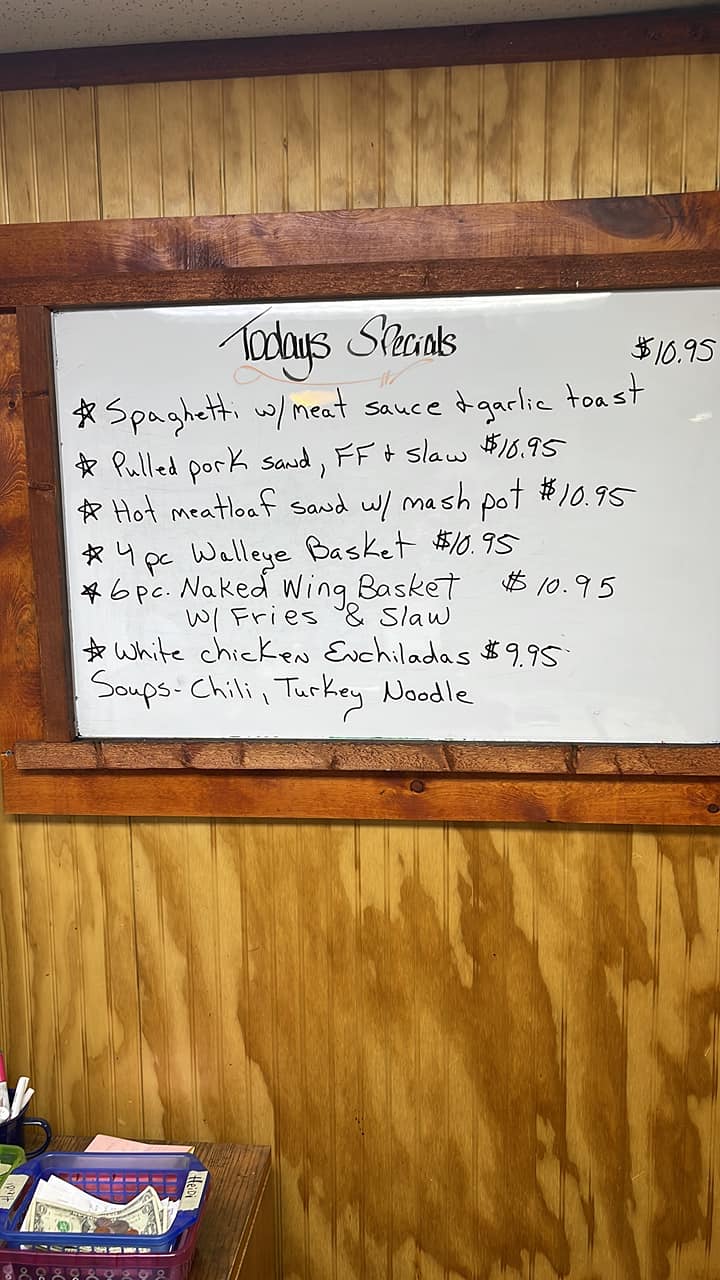 Todays Specials
$10.95
☆ Spaghetti w/ meat sauce & garlic toast
☆ Pulled pork sand, FF & slaw $10.95
☆ Hot meatloaf sand w/ mash pot $10.95
☆ 4 pc Walleye Basket $10.95
☆ 6 pc. Naked Wing Basket $10.95
w/ Fries & Slaw
☆ White chicken Enchiladas $9.95
Soups- Chili, Turkey Noodle
Heidi